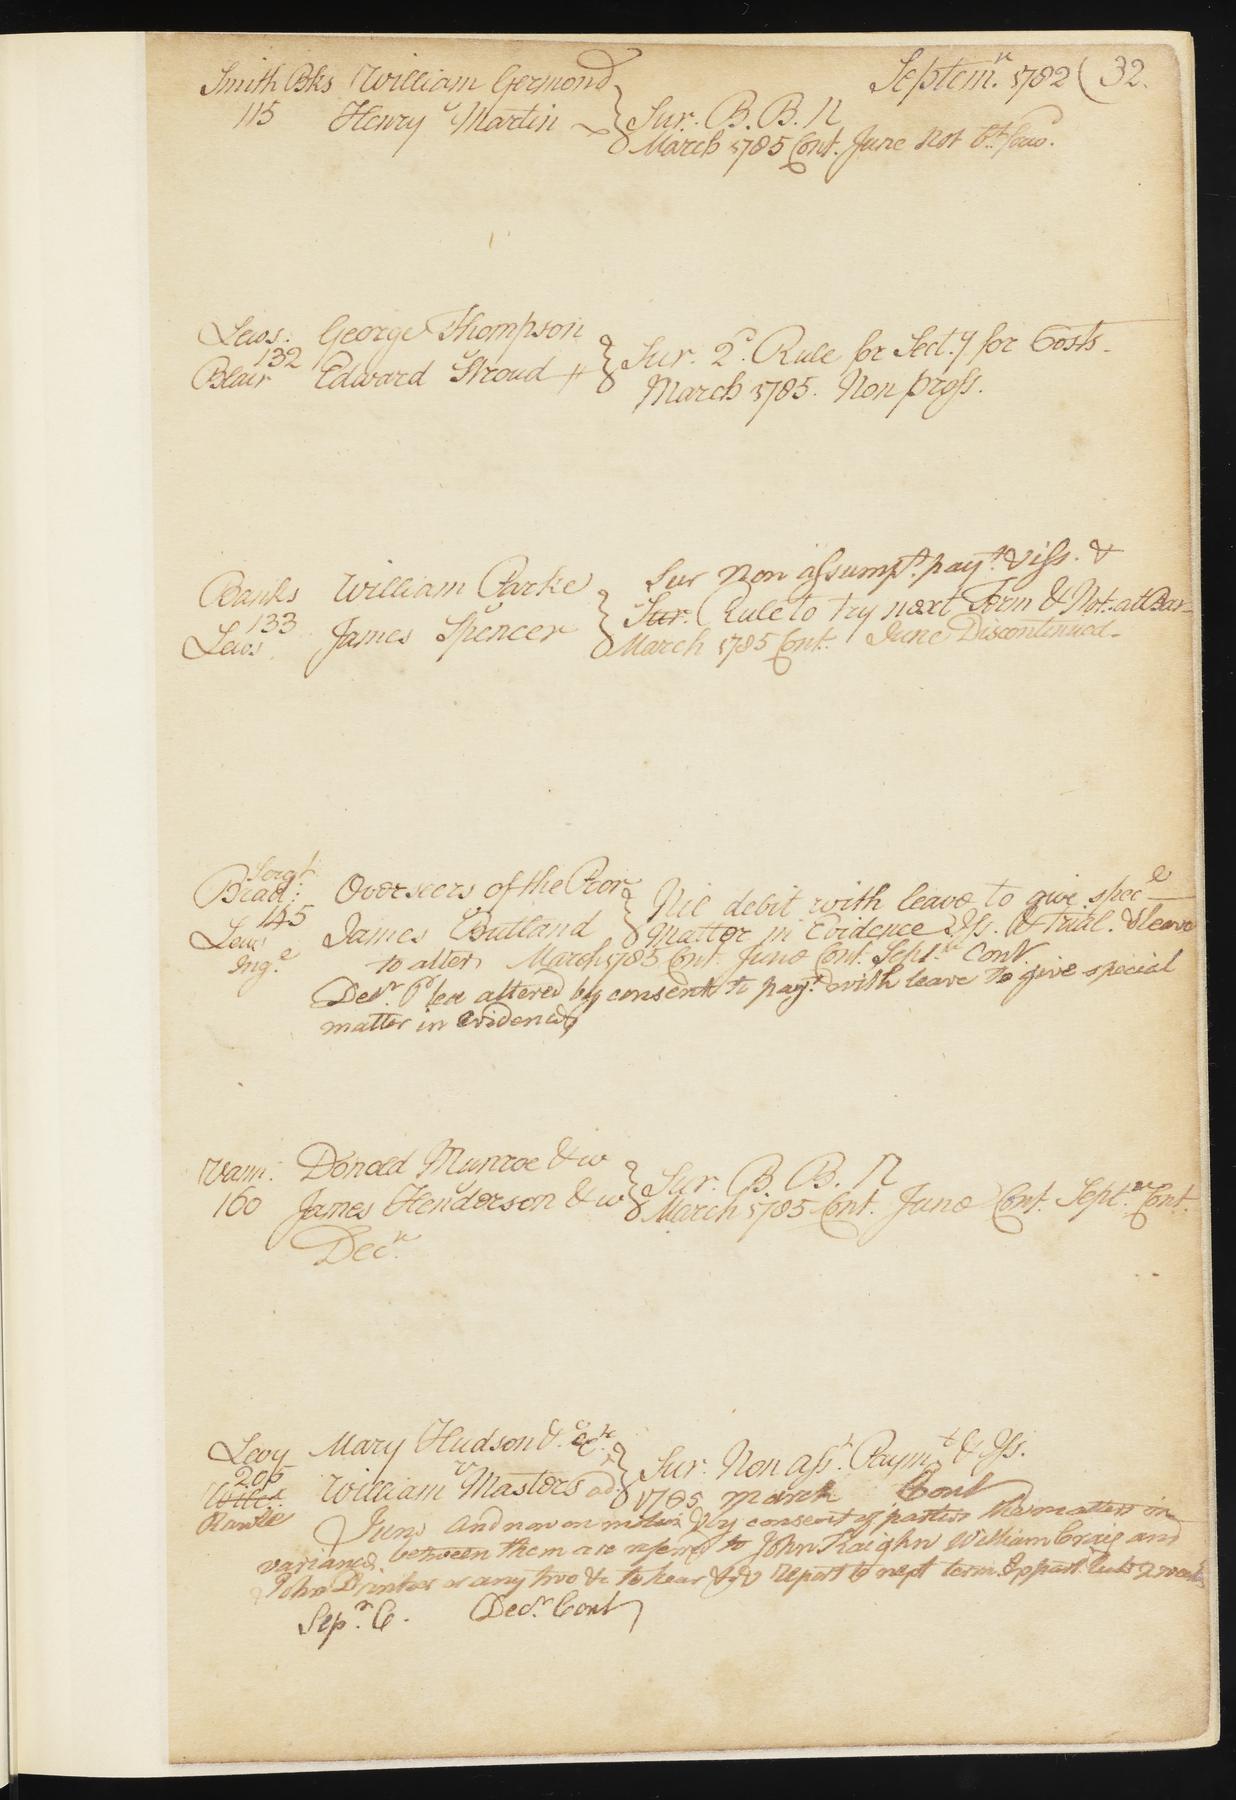 Septem.r 1782 (32.
Smith Bks William Germond
115 Henry Martin
Sur. B. B. N
March 1785 Cont. June Not
Lews. George Thompson
132
Blair Edward Stroud
Sur. 2d. Rule for Sect.y for Costs.
March 1785. Non pross.
Banks William Parke
133
Lews James Spencer
Sur Non assumpt. paymt. & iss. &
Sur. Rule to try next Term & Not. at Bar
March 1785 Cont. June Discontinued.
Sergt.
Brad: Overseers of the Poor
145
Lews James Butland
Ing.e
Nil debit with leave to give spec.e
Matter in Evidence & Iss. & Trial. & leave
to alter March 1785 Cont. June Cont. Sept.r Cont.
Decr. Plea altered by consent to paymt. with leave to give special
matter in evidence
Vann. Donald Munroe & w
160 James Henderson & w
Sur. B. B. N
March 1785 Cont. June Cont. Sept.r Cont.
Decr.
Levy Mary Hudson & Exr.
205 v
Wilcx. William Masters ad.
Rawle
Sur. Non Asst. Paymt. & Iss.
1785 March Cont
June And now on motion & by consent of parties the matters in
variance between them are referred to John Kaighn William Craig and
John Drinker or any two &c to hear &c & report to next term
Sepr. C. Decr. Cont